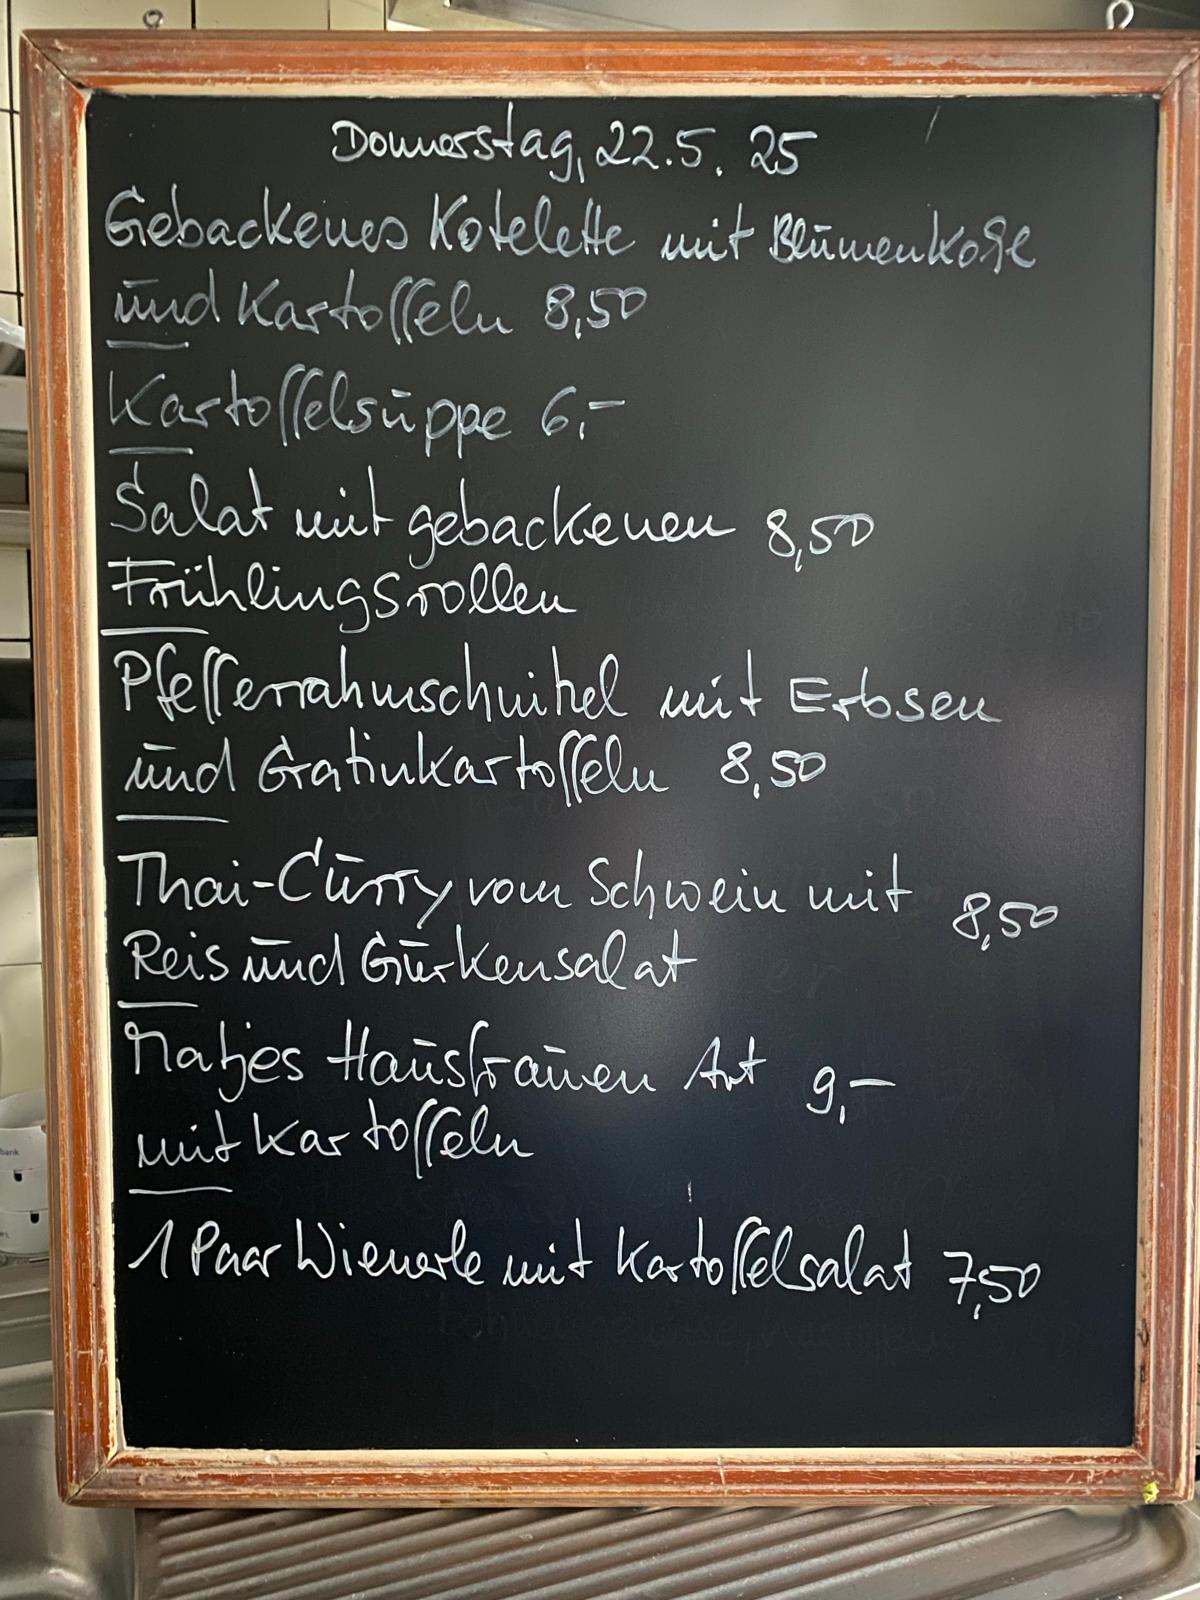 Donnerstag, 22.5. 25
Gebackenes Kotelette mit Blumenkohl
und Kartoffeln 8,50
Kartoffelsuppe 6,-
Salat mit gebackenen 8,50
Frühlingsrollen
Pfefferrahmschnitzel mit Erbsen
und Gratinkartoffeln 8,50
Thai-Curry vom Schwein mit 8,50
Reis und Gurkensalat
Matjes Hausfrauen Art 9,-
mit Kartoffeln
1 Paar Wienerle mit Kartoffelsalat 7,50